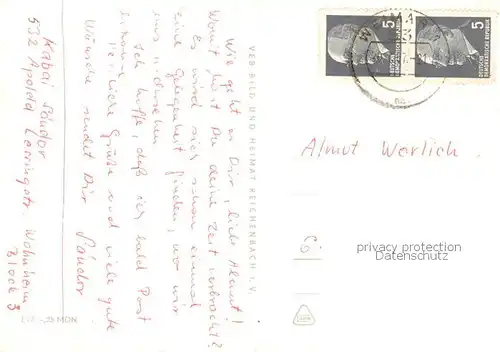 Wie geht es Dir, liebe Almut?
Womit hast Du deine Zeit verbracht?
Es wird sich schon einmal
eine Gelegenheit finden, wo wir
uns wiedersehen.
Ich hoffe, daß ich bald Post
bekomme.
Herzliche Grüße und viele gute
Wünsche sendet Dir
Sándor
Kabai Sándor
532 Apolda Lessingstr. Wohnheim
Block 3
VEB BILD UND HEIMAT REICHENBACH I. V.
5
DEUTSCHE
DEMOKRATISCHE REPUBLIK
5
DEUTSCHE
DEMOKRATISCHE REPUBLIK
Almut Werlich
6
privacy protection
Datenschutz